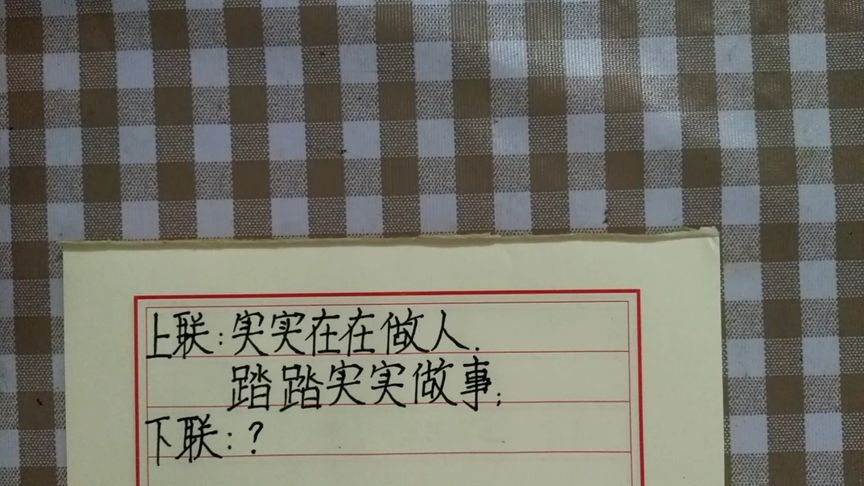 上联:实实在在做人.
踏踏实实做事;
下联:?